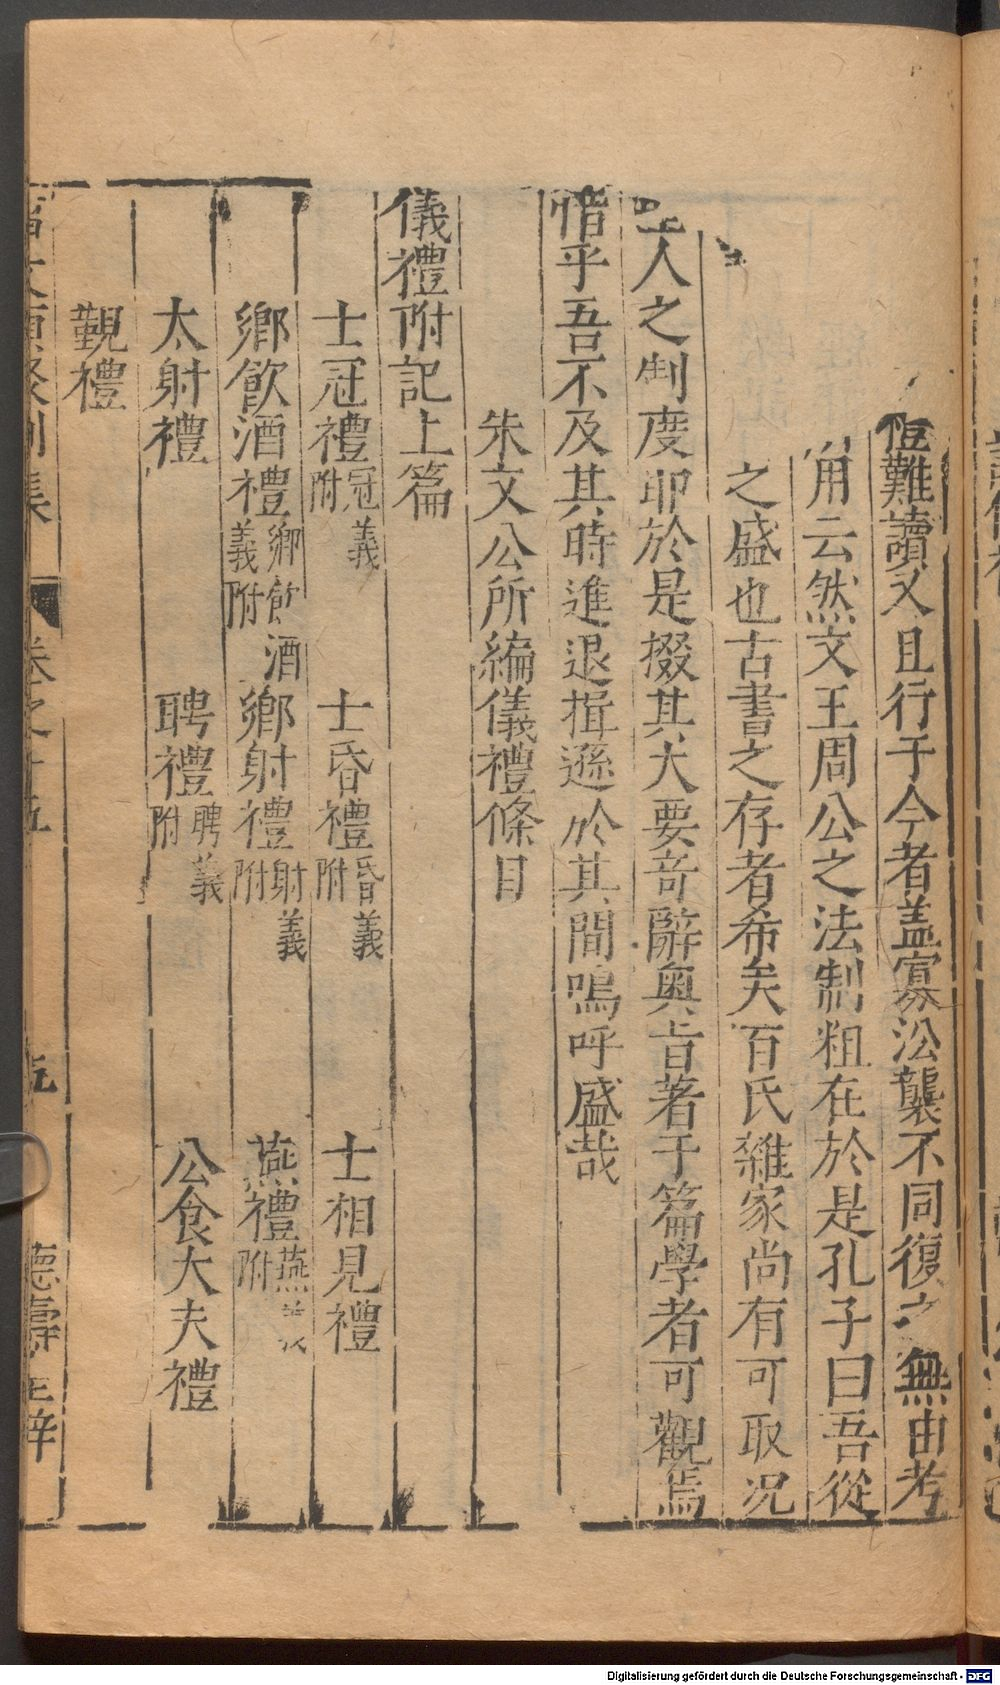 但難讀又且行于今者盖寡㳂襲不同復之無由考
用云然文王周公之法制粗在於是孔子曰吾從
之盛也古書之存者希矣百氏雜家尚有可取况
人之制度耶於是掇其大要竒辭奥旨著于篇學者可觀焉
惜乎吾不及其時進退揖遜於其間嗚呼盛哉
朱文公所編儀禮條目
儀禮附記上篇
士冠禮 冠義附 士昏禮 昏義附 士相見禮
鄉飲酒禮 鄉飲酒義附 鄉射禮 射義附 燕禮 燕義附
太射禮 聘禮 聘義附 公食大夫禮
覲禮
文類聚別集 卷之十五 五 德壽 梓
Digitalisierung gefördert durch die Deutsche Forschungsgemeinschaft - DFG